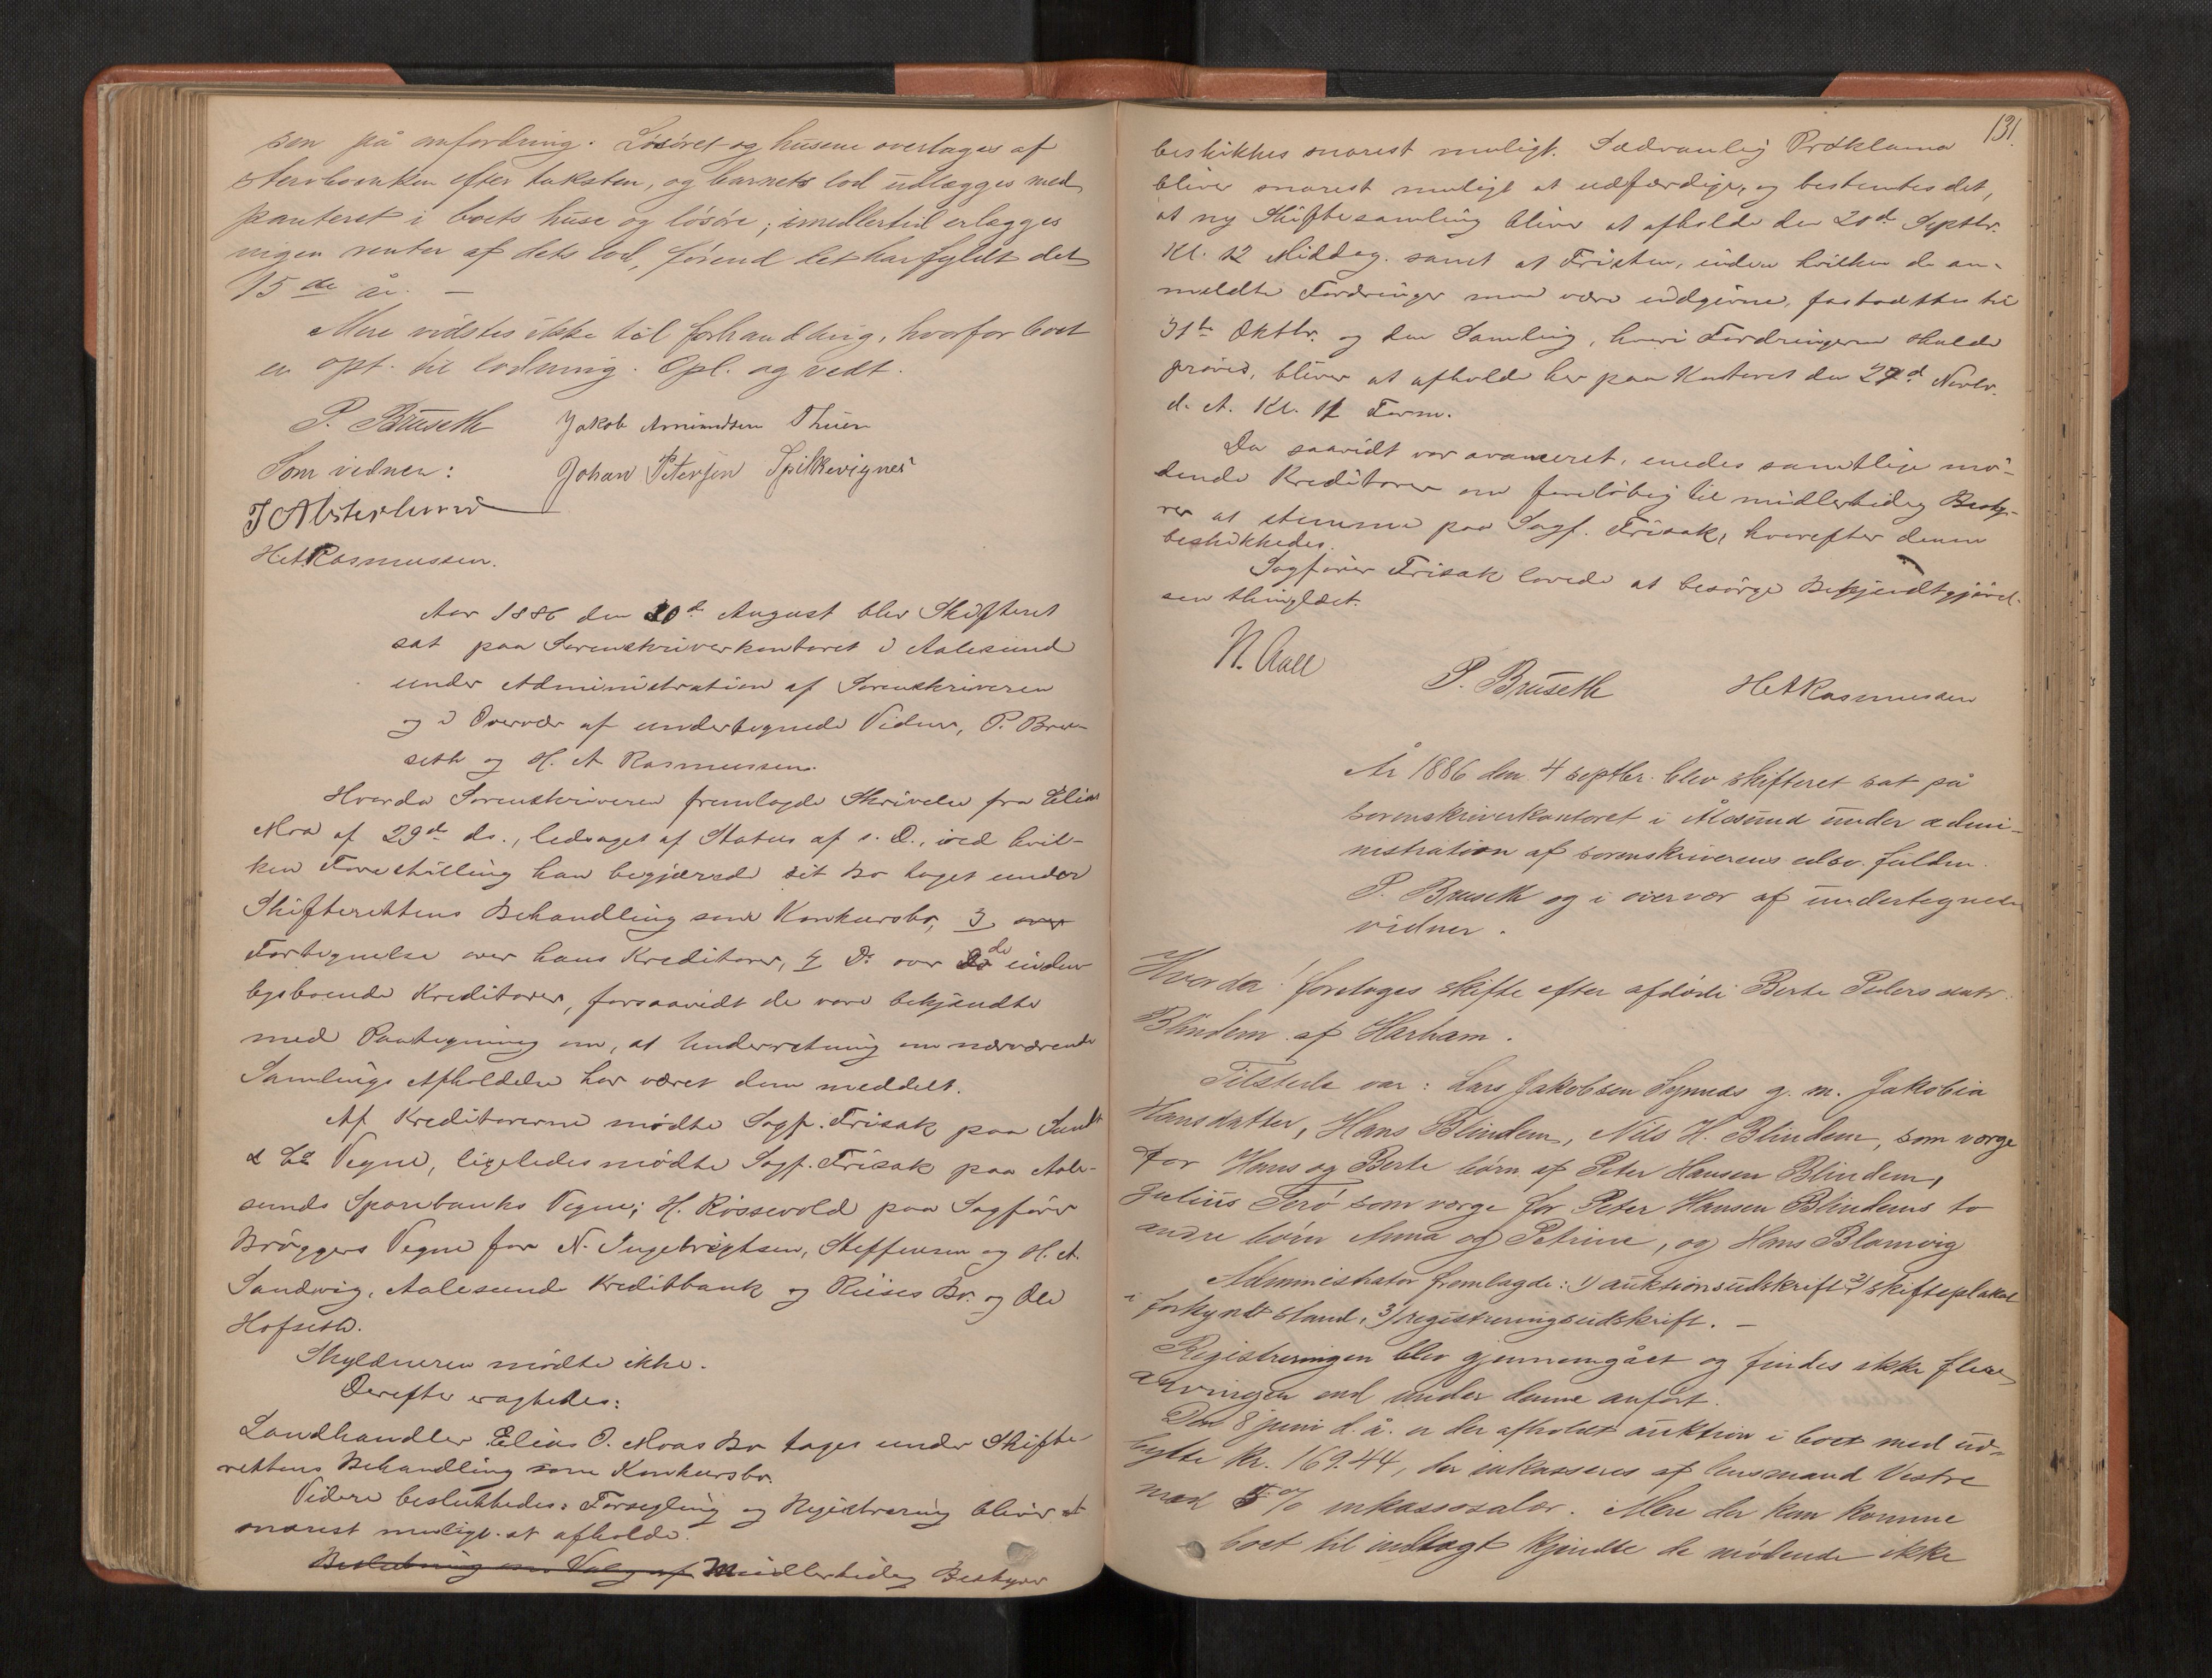 sen på anfordring. Løsøret og husene overtages af
sterboenken efter taksten, og barnets lod udlægges med
panteret i boets huse og løsøre; imidlertid erlægges
ingen renter af dets lod, førend det har fyldt det
15de år. —
Mere vidstes ikke til forhandling, hvorfor boet
er opt. til lodning. Opl. og vedt.
P. Bruseth Jakob Amundsen Thuen
Som vidner: Johan Petersen Spilkevignes
H. A. Rasmussen.
Aar 1886 den 30d August blev Skifteret
sat paa Sorenskriverkontoret i Aalesund
under Administration af Sorenskriveren
og i Overvær af undertegnede Vidner, P. Bru-
seth og H. A. Rasmussen.
Hvorda Sorenskriveren fremlagde Skrivelse fra Elias
Moa af 29de ds., ledsaget af Status af s. D., ved hvil-
ken Forestilling han begjærede sit Bo taget under
Skifterettens Behandling som Konkursbo, 3, over
Fortegnelse over hans Kreditorer, 4 Do over de inden-
bysboende Kreditorer, forsaavidt de vare bekjendte
med Paategning om, at Underretning om nærværende
Samlings Afholdelse har været dem meddelt.
Af Kreditorerne mødte Sagf. Frisak paa Sundt
& Co Vegne, ligeledes mødte Sagf. Frisak paa Aale-
sunds Sparebanks Vegne; H. Røssevold paa Sagfører
Brøggers Vegne for N. Ingebrigtsen, Steffensen og H. A.
Sandvig, Aalesunds Kreditbank og Riises Bo. og Ole
Hofseth.
Skyldneren mødte ikke.
Derefter eragtedes:
Landhandler Elias O. Moas Bo tages under Skifte-
rettens Behandling som Konkursbo.
Videre besluttedes: Forsegling og Registrering bliver at
snarest muligt at afholde.
Beslutning om Valg af Midlertidig Bestyrer
131.
beskikkes snarest muligt. Sædvanlig Proklama
bliver snarest muligt at udfærdige, og bestemtes det,
at ny Skiftesamling bliver at afholde den 20d Septbr.
Kl. 12 Middag. samt at Fristen, inden hvilken de an-
meldte Fordringer maa være indgivne, fastsættes til
31te Oktbr. og den Samling, hvori Fordringerne skulde
prøves, bliver at afholde her paa Kontoret den 27d Novbr.
d. A. Kl. 11 Form.
Da saavidt var avanceret, enedes samtlige mø-
dende Kreditorer om foreløbig til midlertidig Besty-
rer at stemme paa Sagf. Frisak, hvorefter denne
beskikkedes.
Sagfører Frisak lovede at besørge Bekjendtgjørel-
sen thinglæst.
N. Aall
P. Bruseth H A Rasmussen
År 1886 den 4 septbr. blev skifteret sat på
sorenskriverkontoret i Ålesund under admi-
nistration af sorenskriverens edsv. fuldm.
P. Bruseth og i overvær af undertegnede
vidner.
Hvorda! foretages skifte efter afdøde Berte Pedersdatr.
Blindem af Harham.
Tilstede var: Lars Jakobsen Synnes g. m. Jakobia
Hansdatter, Hans Blindem, Nils H. Blindem, som verge
for Hans og Berte børn af Peter Hansen Blindem,
Julius Terø som verge for Peter Hansen Blindems to
andre børn Anna og Petrine, og Hans Blomvig
Administrator fremlagde: 1) auktionsudskrift 2) skifteplakat
i forkyndt stand, 3) registreringsudskrift. —
Registreringen blev gjennemgået og findes ikke flere
arvinger end under denne anført.
Den 8 juni d. å. er der afholdt auktion i boet med ud-
bytte kr. 169.44, der inkasseres af lensmand Vestre
mod 5 % inkassosalær. Mere der kan komme
boet til indtægt kjendte de mødende ikke